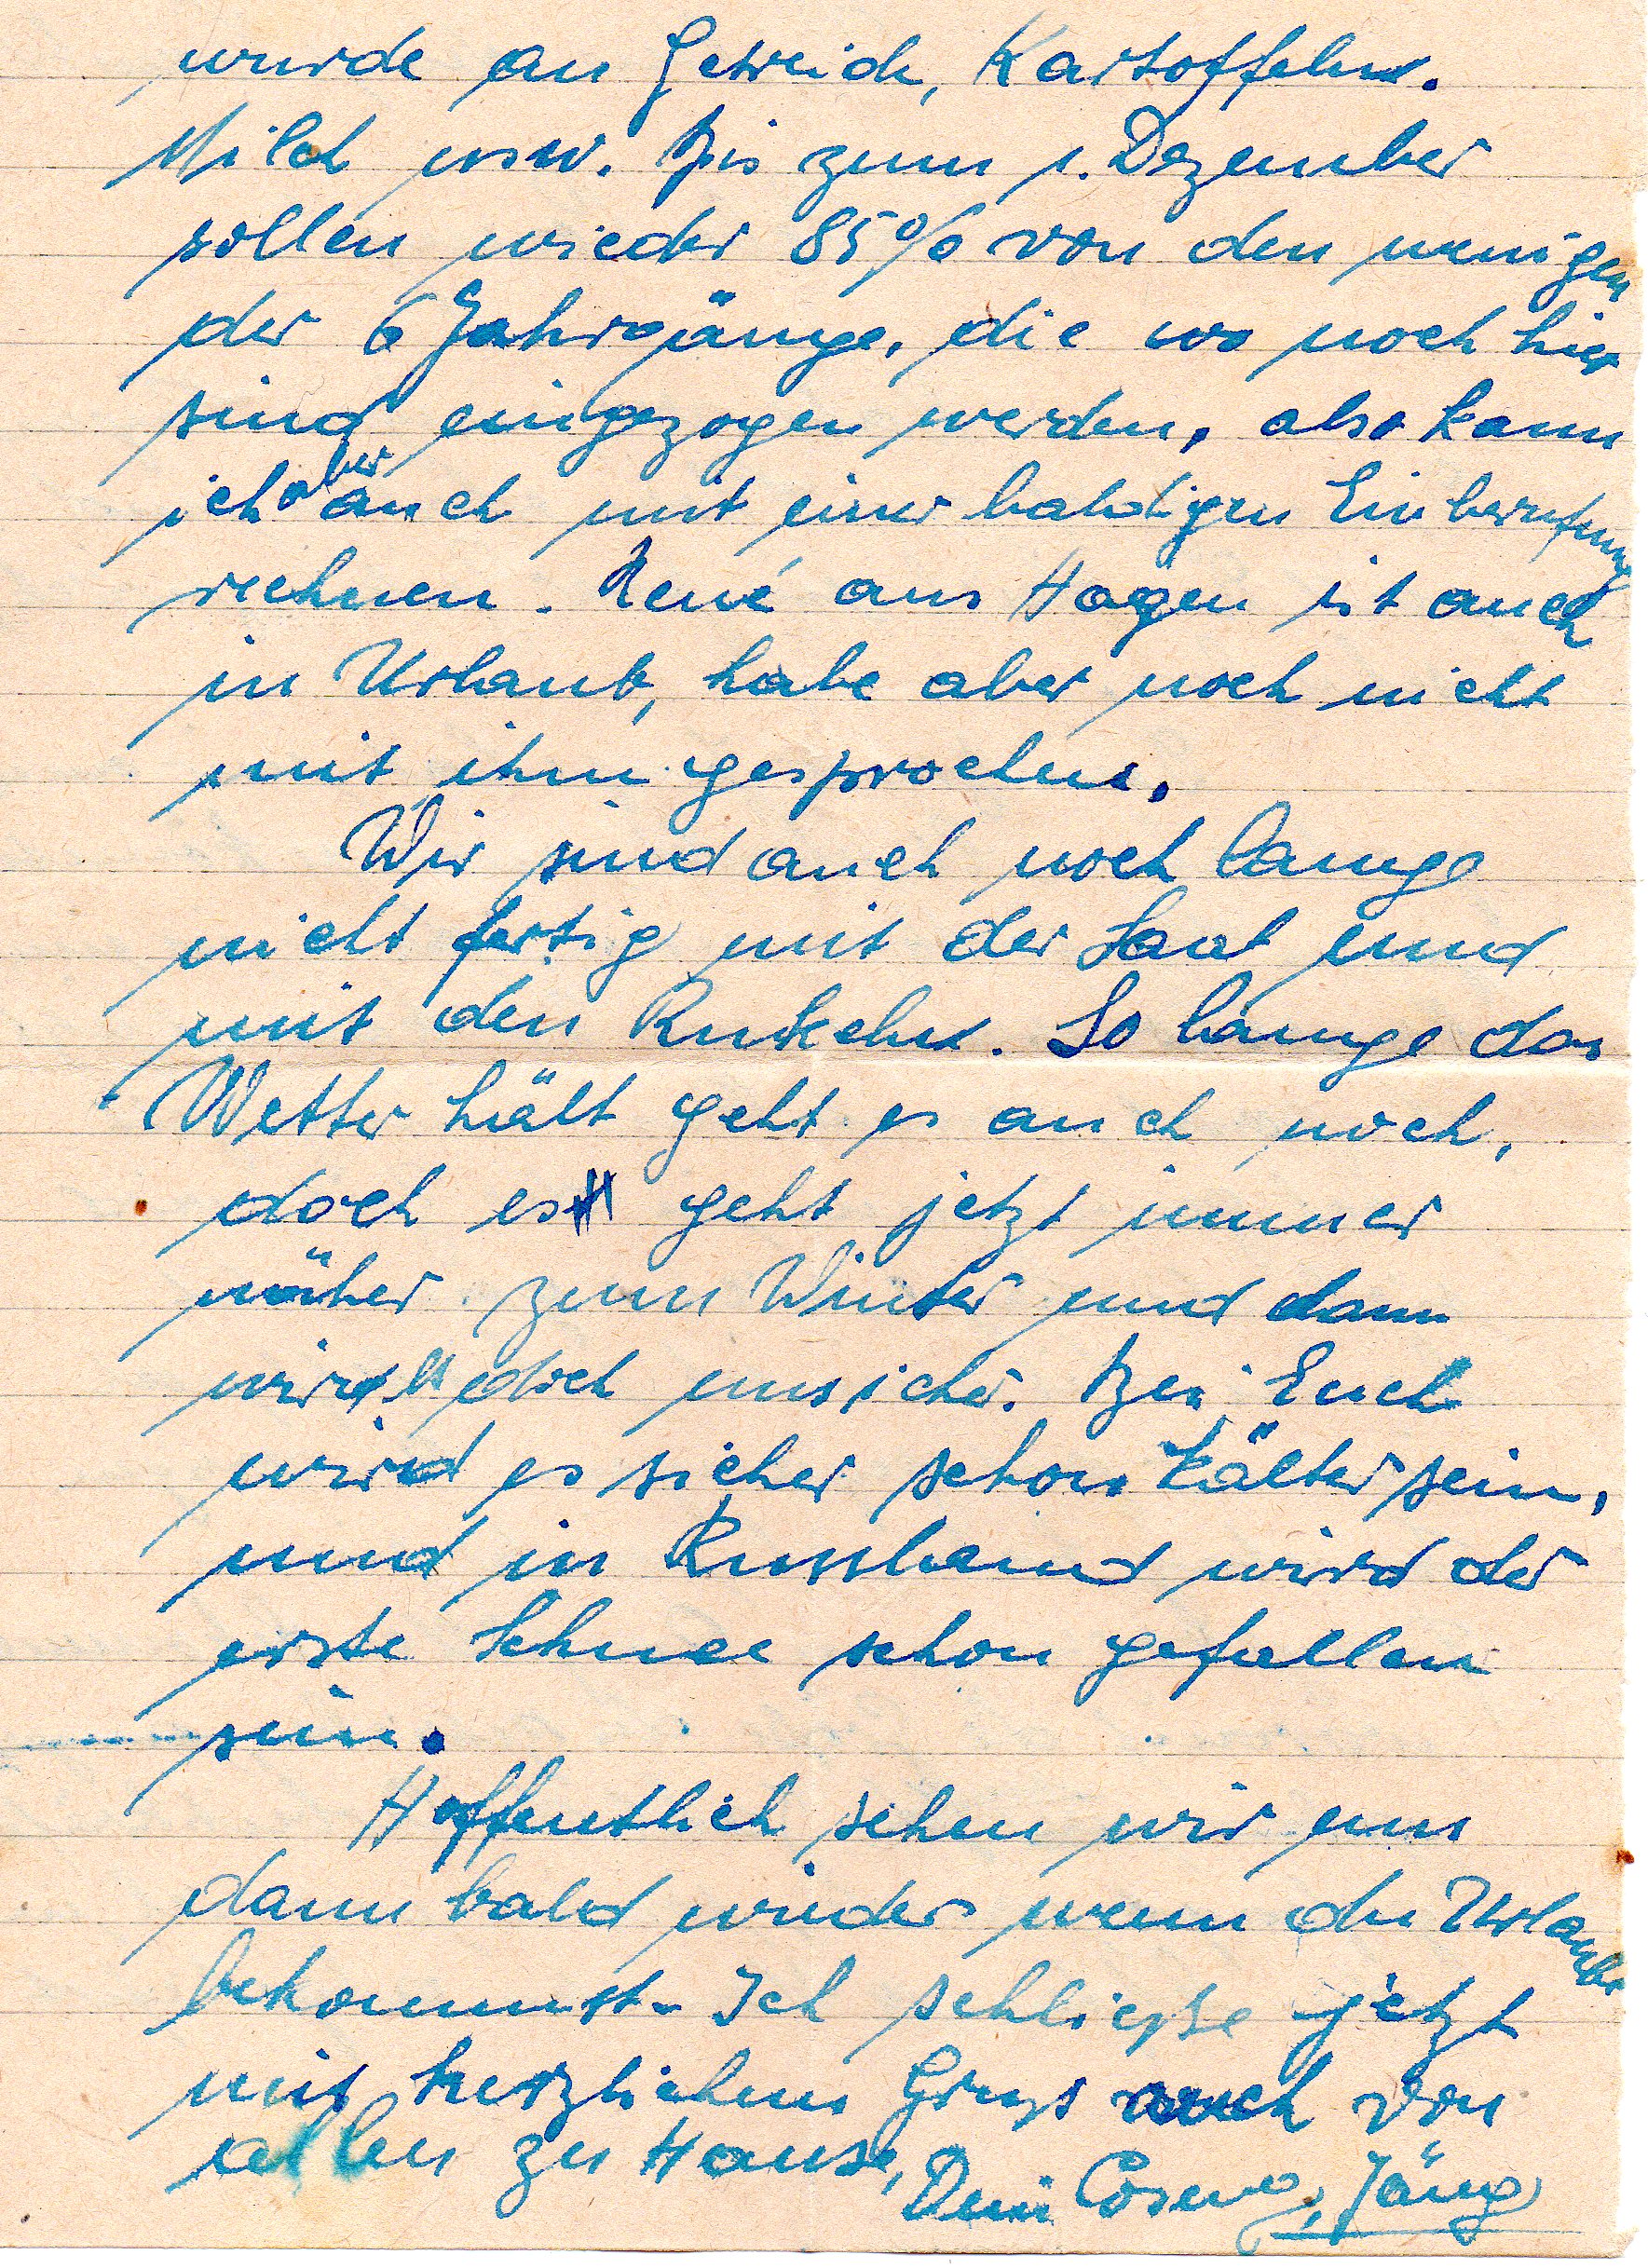 wurde an Getreide, Kartoffeln.
Milch usw. Bis zum 1. Dezember
sollen wieder 85% von den wenigen
der 6 Jahrgänge, die wo noch hier
sind eingezogen werden, also kann
ich aber auch mit einer baldigen Einberufung
rechnen. René aus Hagen ist auch
in Urlaub, habe aber noch nicht
mit ihm gesprochen.
Wir sind auch noch lange
nicht fertig mit der Saat und
mit den Runkeln. So lange das
Wetter hält geht es auch noch,
doch es geht jetzt immer
näher zum Winter und dann
wird es doch unsicher. Bei Euch
wird es sicher schon kälter sein,
und in Russland wird der
erste Schnee schon gefallen
sein.
Hoffentlich sehen wir uns
dann bald wieder wenn du Urlaub
bekommst. Ich schließe jetzt
mit herzlichem Gruß auch von
allen zu Hause,
Dein